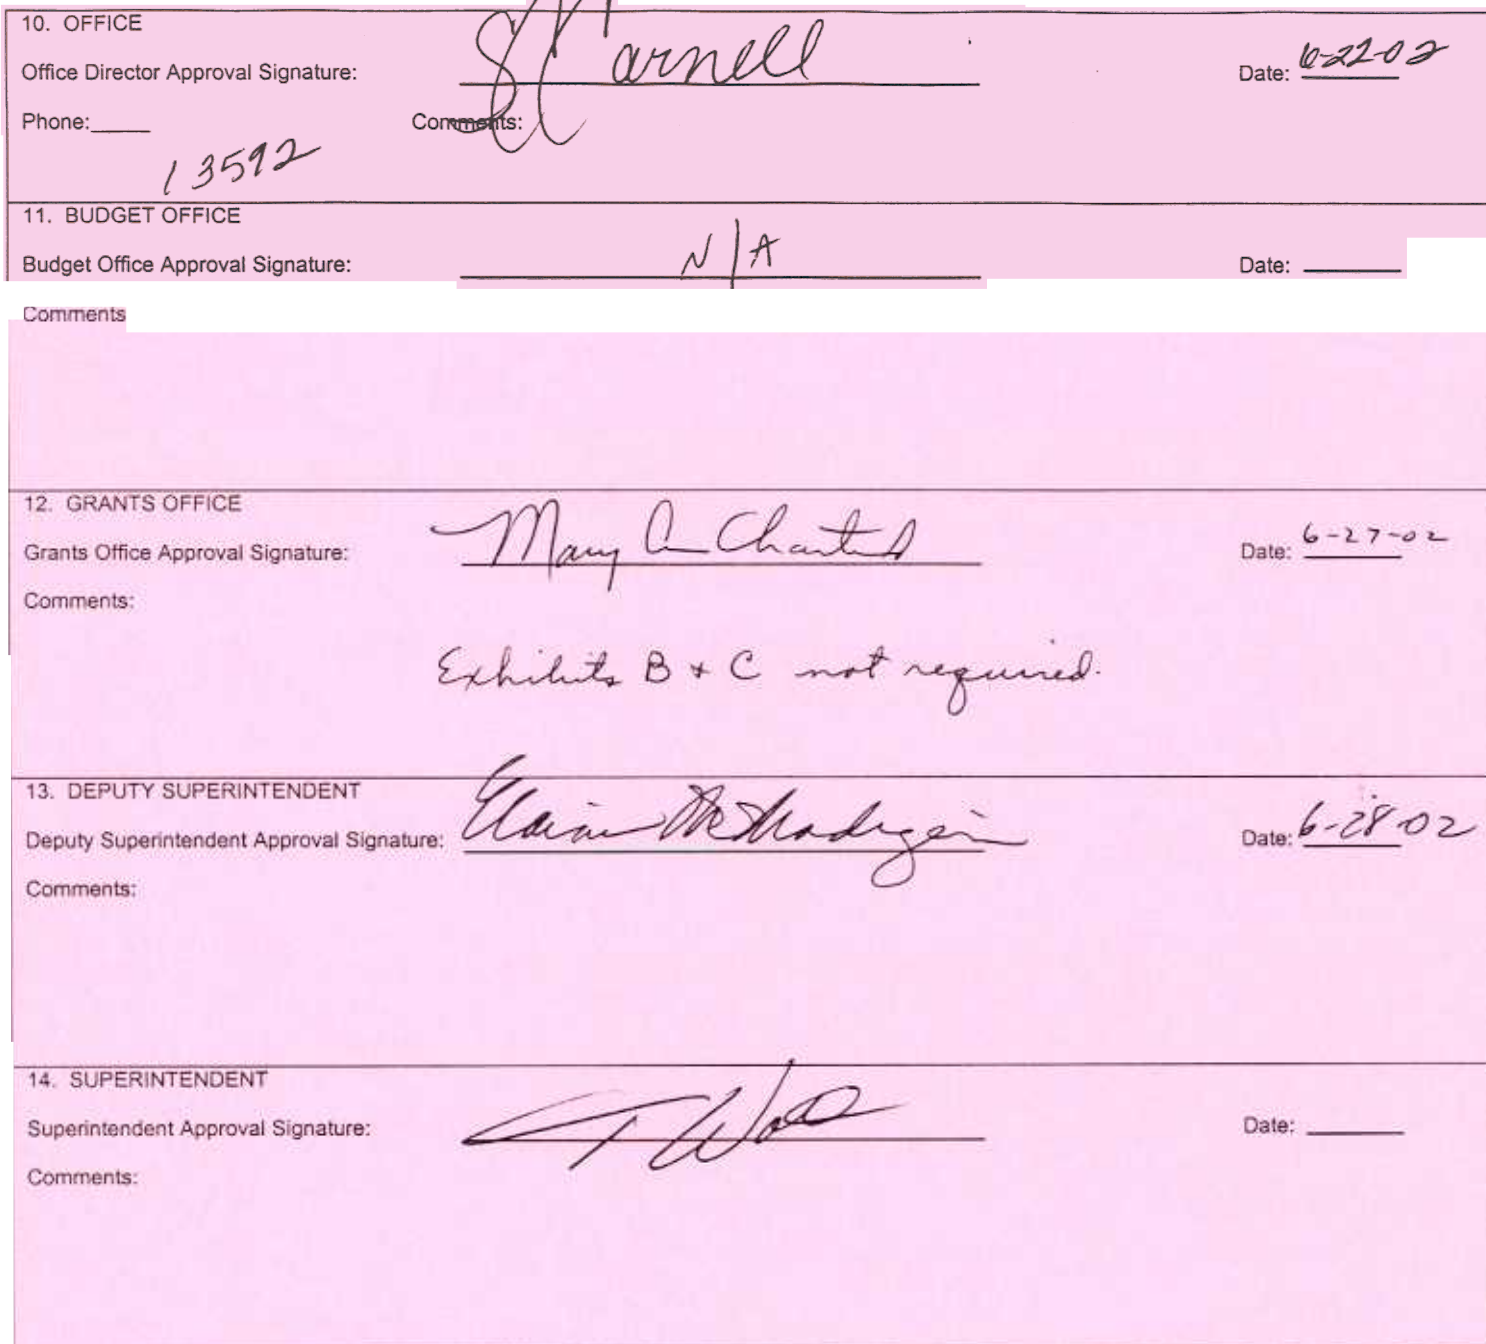 10. OFFICE
Office Director Approval Signature: S Carnell Date: 6-22-02
Phone:____ Comments:
13592
11. BUDGET OFFICE
Budget Office Approval Signature: N/A Date: ____
Comments
12. GRANTS OFFICE
Grants Office Approval Signature: Mary Date: 6-27-02
Comments:
Exhibits B + C not required.
13. DEPUTY SUPERINTENDENT
Deputy Superintendent Approval Signature: Elaine Date: 6-28-02
Comments:
14. SUPERINTENDENT
Superintendent Approval Signature: Date: ____
Comments: